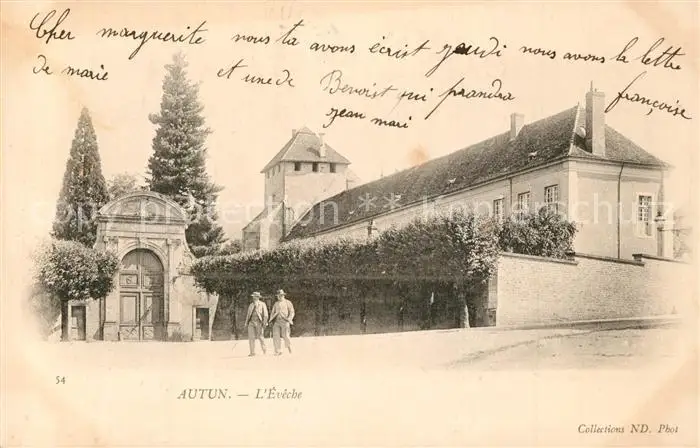 Cher marguerite nous ta avons écrist jeudi nous avons la lettre
de marie et une de Benoist qui prandra françoise
jean mari
54
AUTUN. — L'Évêche
Collections ND. Phot